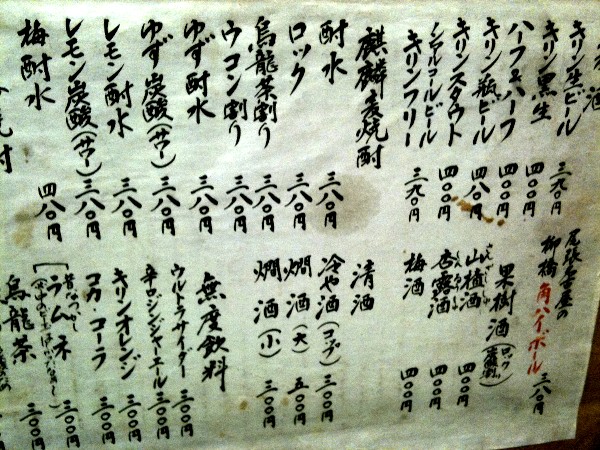 酒
キリン生ビール 三九〇円
キリン黒生 四〇〇円
ハーフ&ハーフ 四〇〇円
キリン瓶ビール 四八〇円
キリンスタウト 四〇〇円
ノンアルコールビール
キリンフリー 三九〇円
麒麟麦焼酎
酎水 三八〇円
ロック 三八〇円
烏龍茶割り 三八〇円
ウコン割り 三八〇円
ゆず酎水 三八〇円
ゆず炭酸(サワー) 三八〇円
レモン酎水 三八〇円
レモン炭酸(サワー) 三八〇円
梅酎水 四八〇円
尾張名古屋の
柳橋角ハイボール 三八〇円
果樹酒(ロック
山楂酒 四〇〇円
杏露酒 四〇〇円
梅酒 四〇〇円
清酒
冷や酒(コップ) 三〇〇円
燗酒(大) 五〇〇円
燗酒(小) 三〇〇円
無度飲料
ウルトラサイダー 三〇〇円
辛口ジンジャーエール 三〇〇円
キリンオレンジ 三〇〇円
コカ・コーラ 三〇〇円
昔なつかし
ラムネ 三〇〇円
烏龍茶 三〇〇円